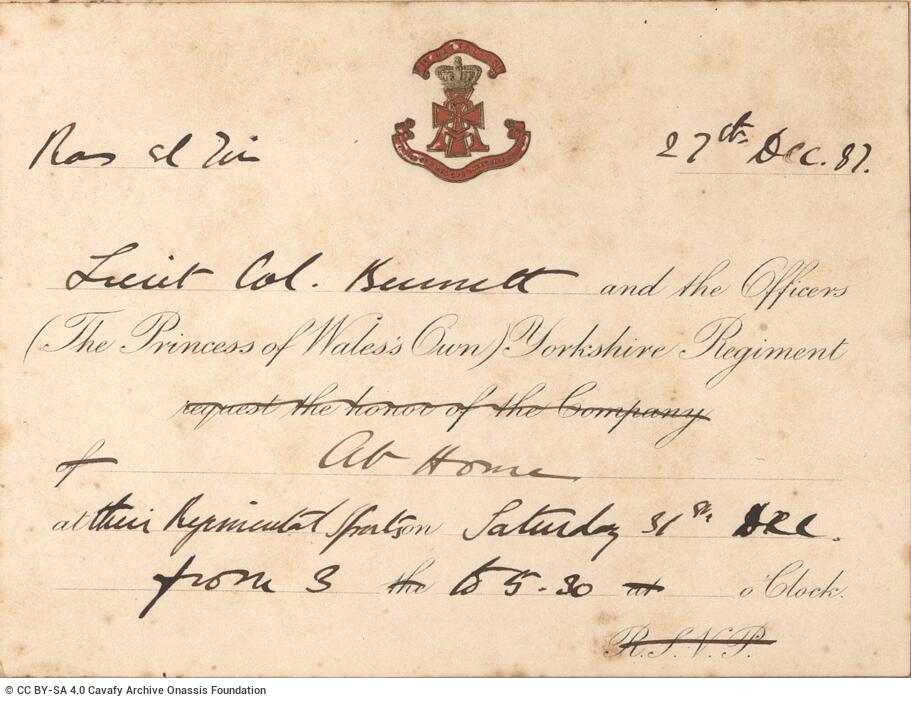 Ras el Tin
27th Dec. 87.
Lieut Col. Bennett and the Officers
(The Princess of Wales's Own) Yorkshire Regiment
request the honor of the Company
of At Home
at their Regimental Sports on Saturday 31st Dec.
from 3 the to 5.30 at o'Clock.
R.S.V.P.
© CC BY-SA 4.0 Cavafy Archive Onassis Foundation